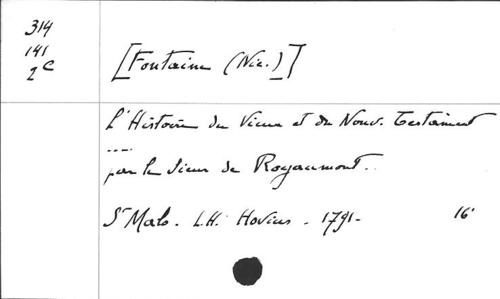 314
141
2c
[Fontaine (Nic.)]
L'Histoire du Vieux et du Nouv. Testament
....
par le Sieur de Royaumont..
St Malo. L.H. Hovius - 1791-
16°